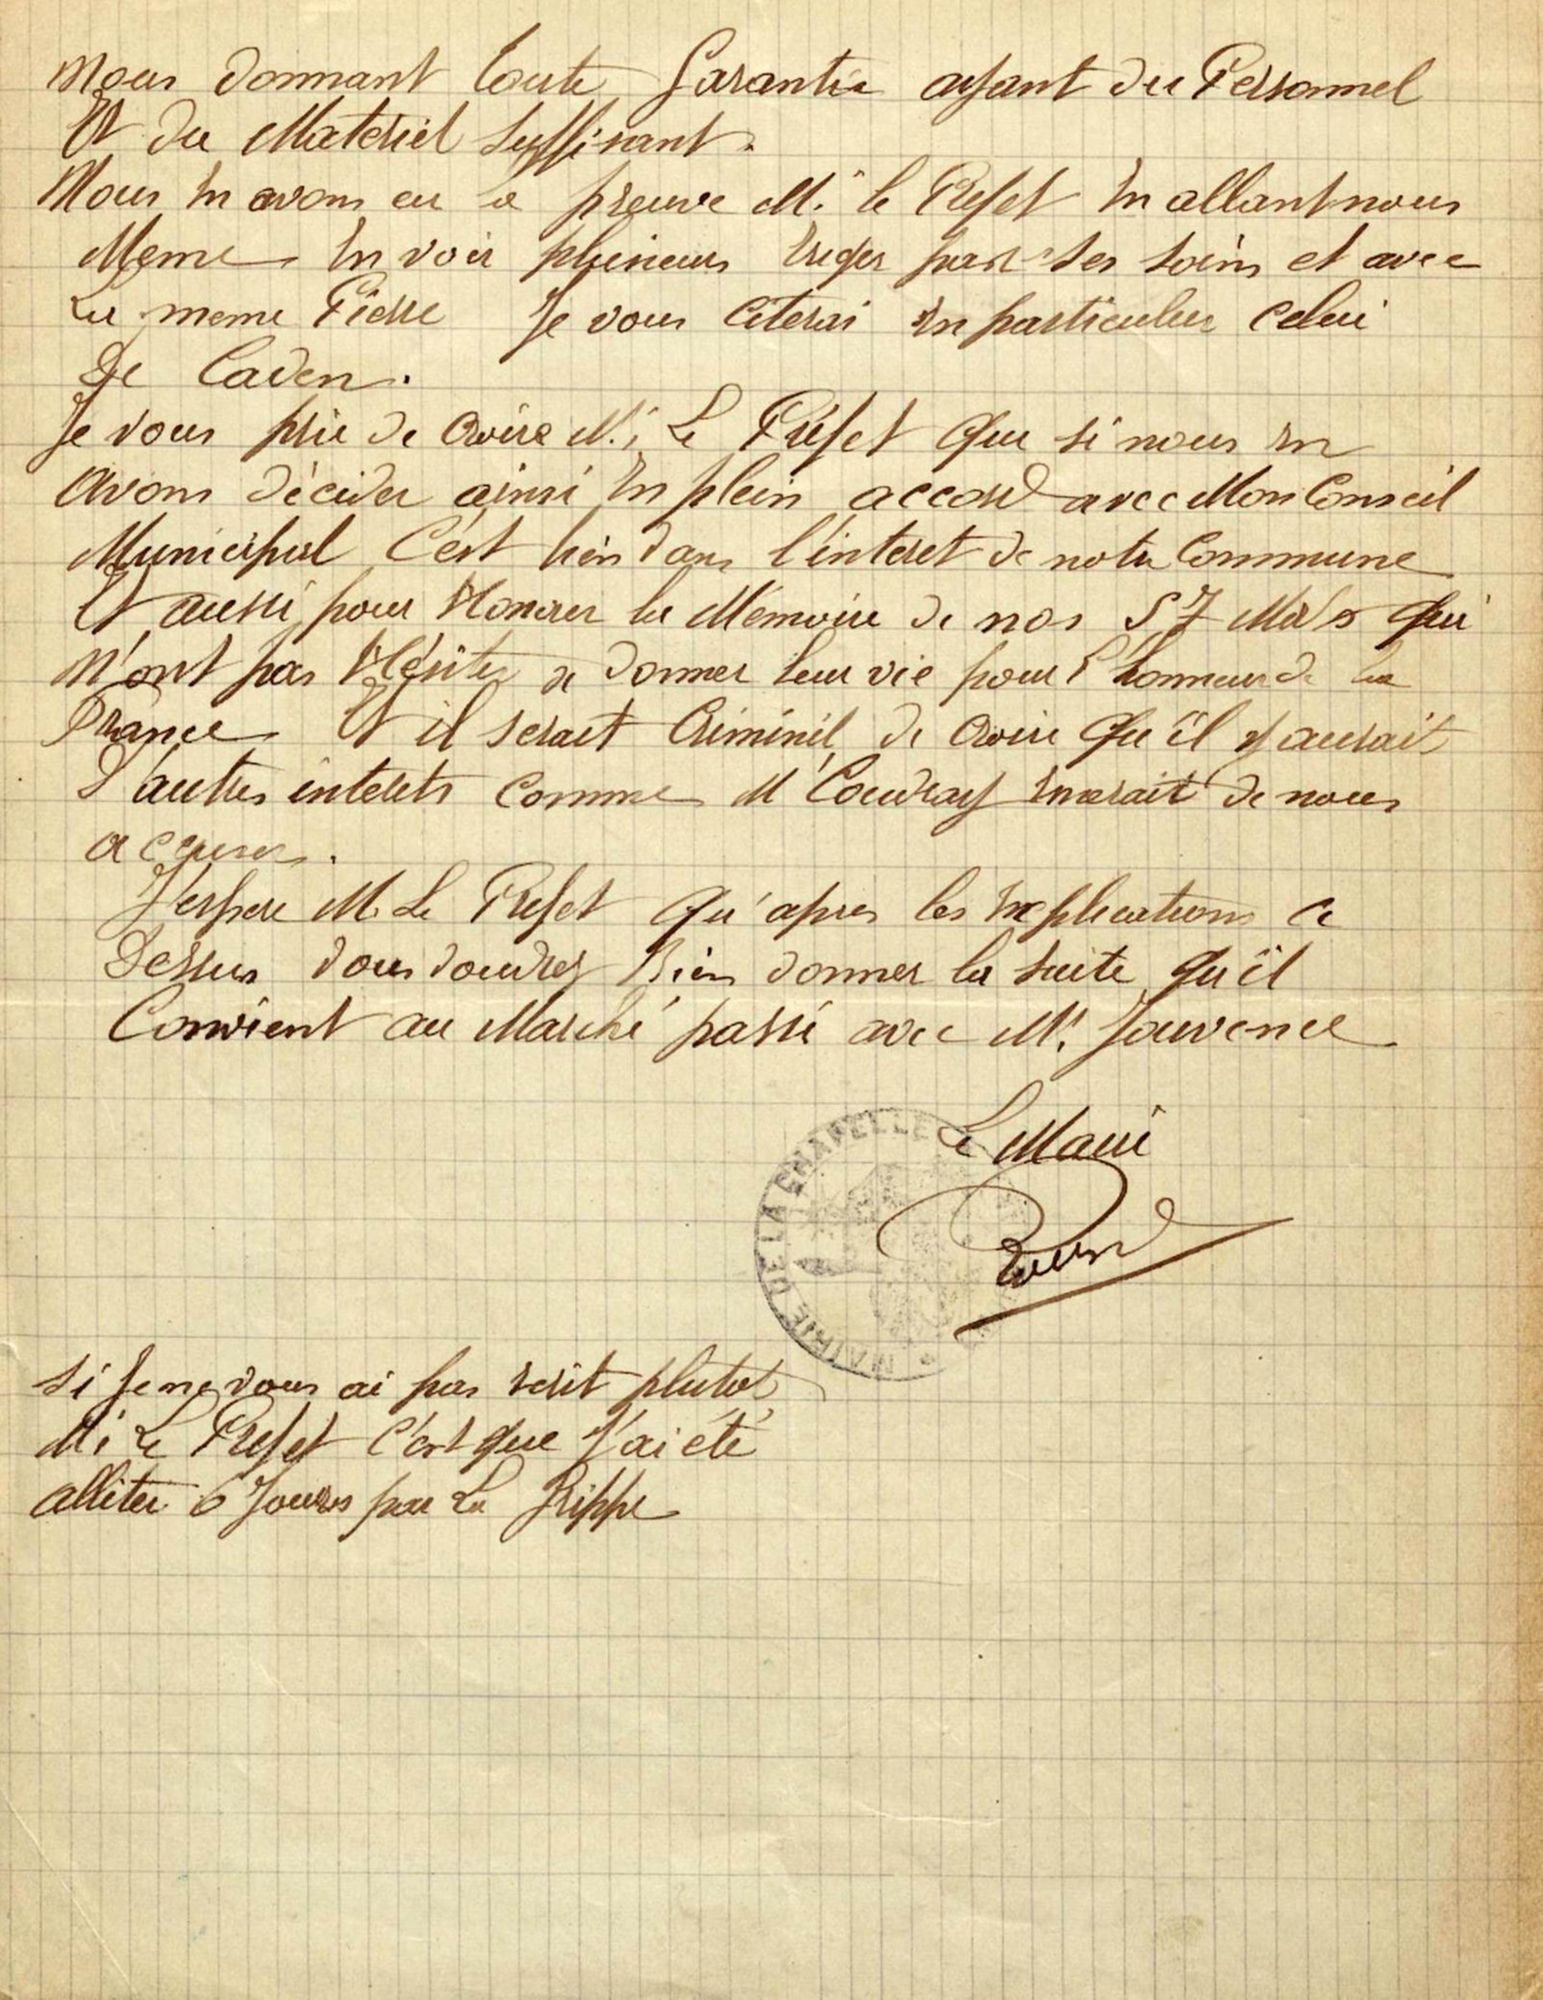 Nous donnant toute Garantie ayant du Personnel
Et du Materiel suffisant.
Nous En avons eu la preuve M. le Prefet En allant nous
Meme En voir plusieurs Eriger par ses soins et avec
La meme Pierre Je vous citerai En particulier celui
De Caden.
Je vous prie de croire M. Le Préfet que si nous En
avons décider ainsi En plein accord avec Mon Conseil
Municipal C'est bien dans l'interet de notre Commune
Et aussi pour Honorer la Mémoire de nos 57 Morts qui
N'ont pas Hésiter de donner leur vie pour l'honneur de la
France Et il serait Criminel de croire qu'il y aurait
d'autres interets comme M Coudray de nous
accuser.
J'espere M. Le Prefet qu'apres les Explications ci
Dessus vous voudrez Bien donner la suite qu'il
Convient au Marché passé avec Mr Jouvence
Le Maire
MAIRIE DE LA CHAPELLE
si Je ne vous ai pas Ecrit plutot
M. Le Prefet c'est que J'ai été
alliter 6 Jours par La Grippe